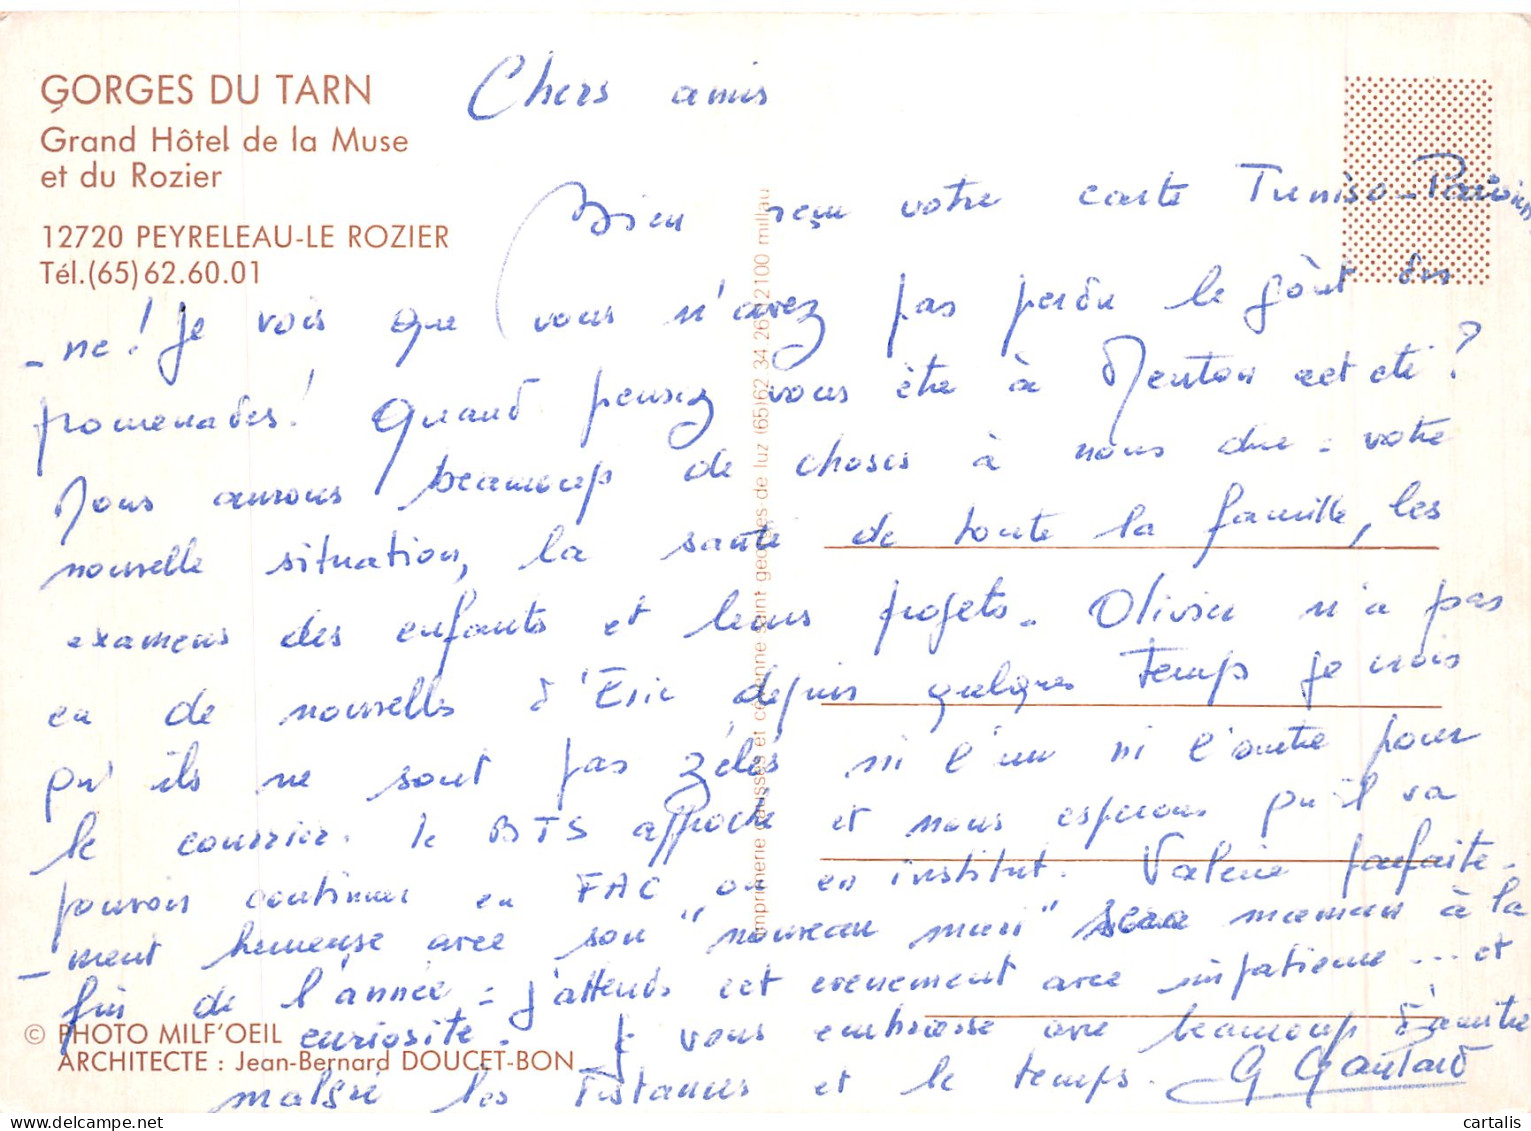 GORGES DU TARN
Grand Hôtel de la Muse
et du Rozier
12720 PEYRELEAU-LE ROZIER
Tél.(65)62.60.01
Chers amis
Bien reçu votre carte Tuniso-Parisien
-ne! Je vois que vous n'avez pas perdu le goût des
promenades! Quand pensez vous être à Menton cet été?
Nous aurons beaucoup de choses à nous dire = votre
nouvelle situation, la santé de toute la famille, les
examens des enfants et leurs projets. Olivier n'a pas
eu de nouvelles d'Eric depuis quelques temps je crois
qu'ils ne sont pas zélés ni l'un ni l'autre pour
le courrier. Le BTS approche et nous esperons qu'il va
pouvoir continuer en FAC ou en institut. Valérie parfaite-
-ment heureuse avec son "nouveau mari" sera maman à la
fin de l'année = j'attends cet evenement avec impatience... et
curiosité. Je vous embrasse avec beaucoup d'amitié
malgré les distances et le temps. G Gautard
© PHOTO MILF'OEIL
ARCHITECTE : Jean-Bernard DOUCET-BON
imprimerie causses et cévenne saint georges de luz (65)62 34 26 12100 millau
cartalis